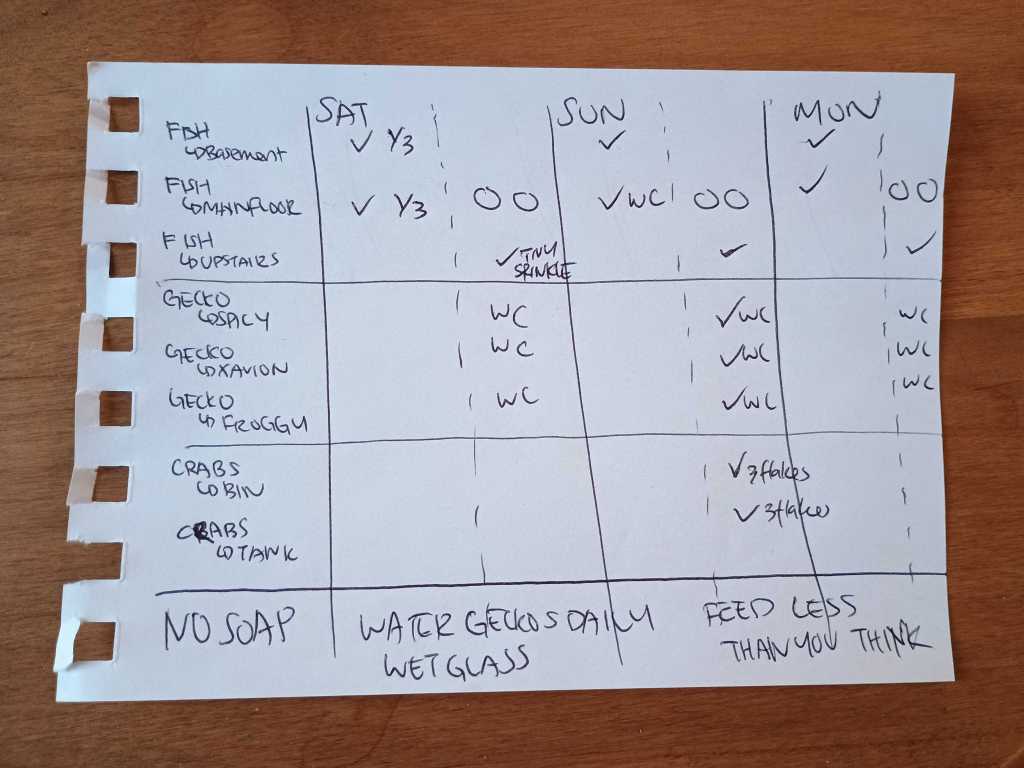 SAT SUN MON
FISH ✓ Y3 ✓ ✓
↳ Basement
FISH ✓ Y3 OO ✓ WC OO ✓ OO
↳ MAINFLOOR
FISH ✓ TNY ✓ ✓
↳ UPSTAIRS SRINKLE
GECKO WC ✓ WC WC
↳ SPICY
GECKO WC ✓ WC WC
↳ XAVION
GECKO WC ✓ WC WC
↳ FROGGY
CRABS ✓ 3 flakes
↳ BIN
CRABS ✓ 3 flakes
↳ TANK
NO SOAP WATER GECKOS DAILY FEED LESS
WET GLASS THAN YOU THINK